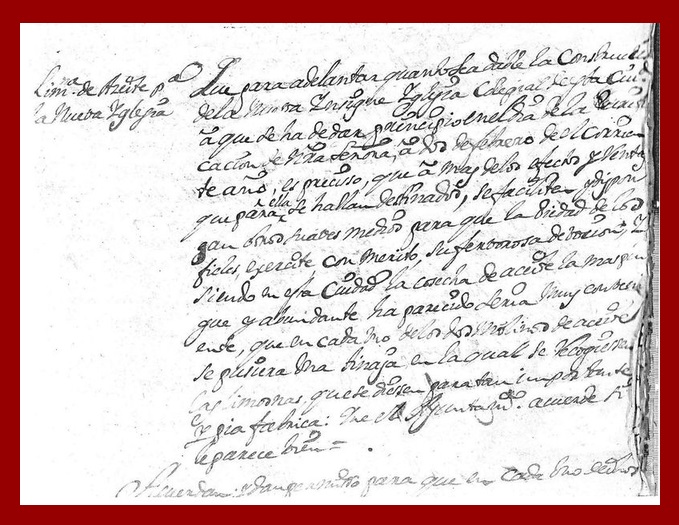 Lim.na de Azeite p.a
la Nueva Yglesia
Que para adelantar quanto sea dable la Construcci
de la Nueva Insigne Yglesia Colegial de esta Ciu
â que se ha de dar principio en el dia de la
cacion de Nra Señora, â dos de febrero de el Corrien
te año, es preciso, que â mas de los efectos y Venta
que para ella se hallan destinados, se faciliten y dispon
gan otros suaves medios para que la Piedad de los
fieles, exercite con merito, su fervorosa devocion, Y
siendo en esta Ciudad la cosecha de aceite la mas pin
gue y abundante ha parecido seria muy conveni
ente, que en cada uno de los dos Molinos de aceite
se pusiera una tinaja en la qual se recogiessen
las limosnas, que se diessen para tan importante
y pia fabrica: Que el Ayuntam.to acuerde si
le parece bien =
Acuerdan y dan permisso para que en cada uno de dhos